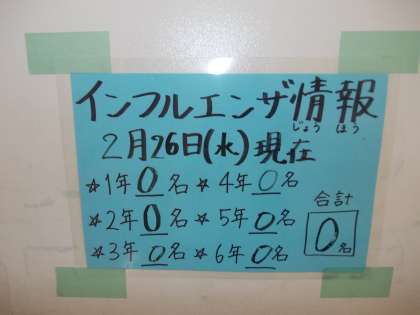 インフルエンザ情報
じょう ほう
2月26日(水)現在
☆1年 0名 ☆4年 0名
☆2年 0名 ☆5年 0名
☆3年 0名 ☆6年 0名
合計
0名